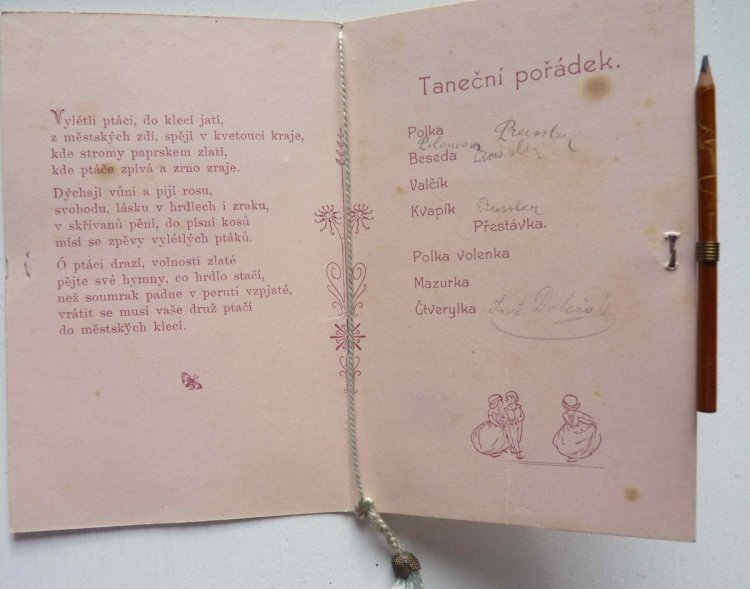 Vylétli ptáci, do klecí jatí,
z městských zdi, spějí v kvetoucí kraje,
kde stromy paprskem zlatí,
kde ptáče zpívá a zrno zraje.
Dýchají vůni a pijí rosu,
svobodu, lásku v hrdlech i zraku,
v skřivanů pění, do písní kosů
mísí se zpěvy vylétlých ptáků.
Ó ptáci drazí, volnosti zlaté
pějte své hymny, co hrdlo stačí,
než soumrak padne v peruti vzpjaté,
vrátit se musí vaše druž ptačí
do městských klecí.
Taneční pořádek.
Polka
Beseda
Valčík
Kvapík
Přestávka.
Polka volenka
Mazurka
Čtverylka